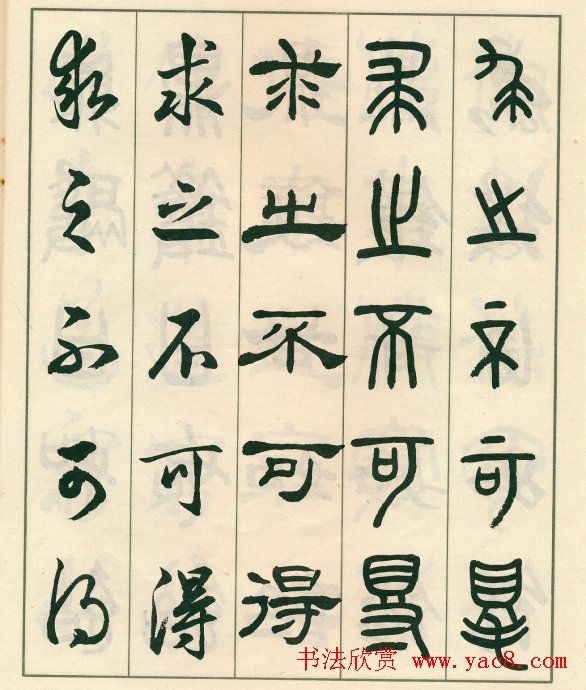 求之不可得
求之不可得
求之不可得
求之不可得
求之不可得
书法欣赏 www.yac8.com